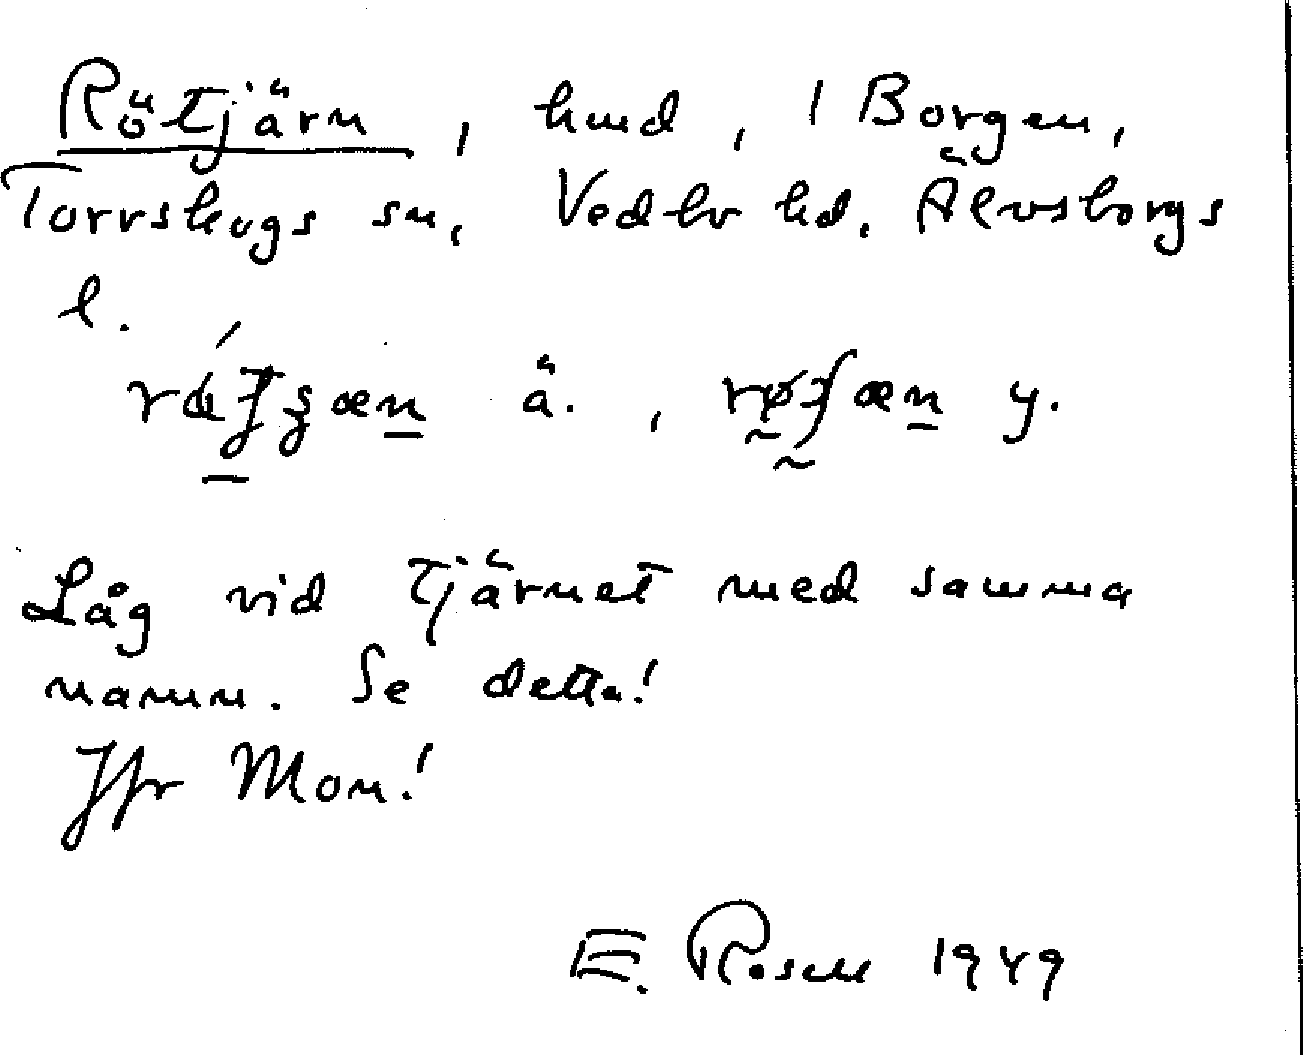 Rötjärn, hmd, 1 Borgen,
Torrskogs sn, Vedbo hd. Älvsborgs
l.
ä., y.
Låg vid tjärnet med samma
namn. Se detta!
Jfr Mon!
E. Rosell 1949